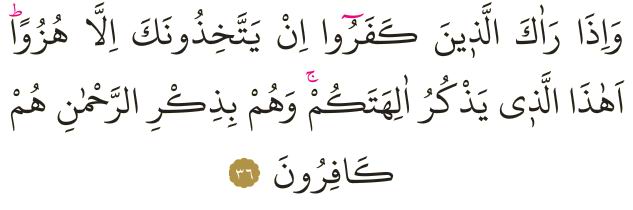 وَاِذَا رَاٰكَ الَّذ۪ينَ كَفَرُٓوا اِنْ يَتَّخِذُونَكَ اِلَّا هُزُوًاۜ
اَهٰذَا الَّذ۪ى يَذْكُرُ اٰلِهَتَكُمْۚ وَهُمْ بِذِكْرِ الرَّحْمٰنِ هُمْ
كَافِرُونَ ٣٦